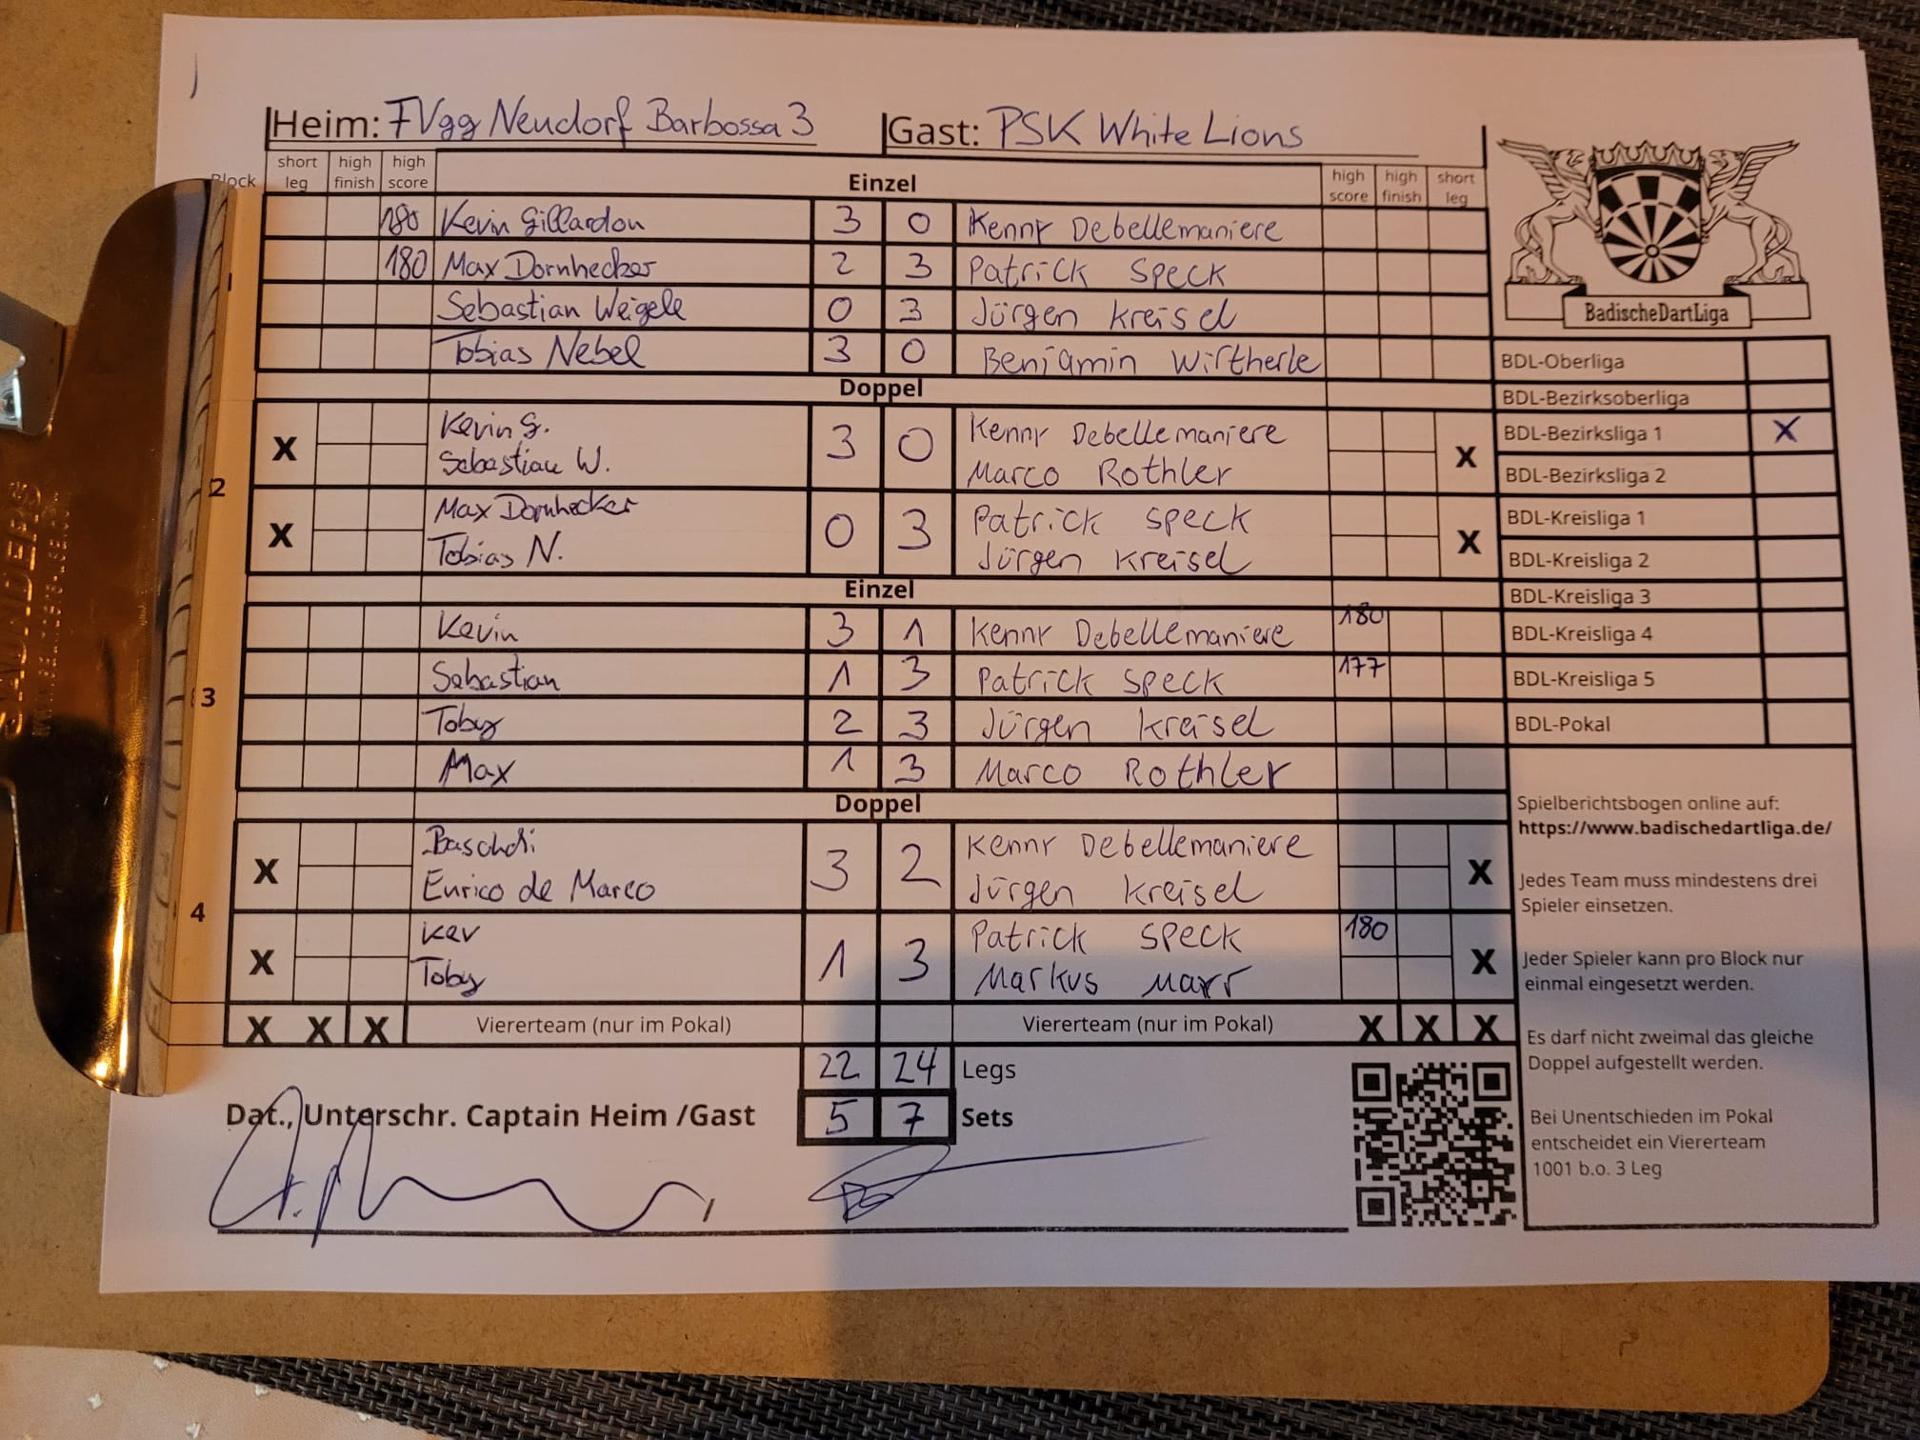 Heim: FVgg Neudorf Barbossa 3 Gast: PSK White Lions
Block short leg high finish high score Einzel high score high finish short leg
180 Kevin Gillardon 3 0 Kenny Debellemaniere
180 Max Dornhecker 2 3 Patrick Speck
Sebastian Weigele 0 3 Jürgen Kreisel
Tobias Nebel 3 0 Benjamin Wirtherle
Doppel
Kevin G.
X 3 0 X
Sebastian W.
Kenny Debellemaniere
Marco Rothler
2
Max Dornhecker
X 0 3 X
Tobias N.
Patrick Speck
Jürgen Kreisel
Einzel
Kevin 3 1 Kenny Debellemaniere 180
Sebastian 1 3 Patrick Speck 177
3
Toby 2 3 Jürgen Kreisel
Max 1 3 Marco Rothler
Doppel
Baschdi
X 3 2 X
Enrico de Marco
Kenny Debellemaniere
Jürgen Kreisel
4
Kev
X 1 3 X
Toby
Patrick Speck 180
Markus Marr
X X X Viererteam (nur im Pokal) Viererteam (nur im Pokal) X X X
22 24 Legs
Dat., Unterschr. Captain Heim /Gast 5 7 Sets
BadischeDartLiga
BDL-Oberliga
BDL-Bezirksoberliga
BDL-Bezirksliga 1 X
BDL-Bezirksliga 2
BDL-Kreisliga 1
BDL-Kreisliga 2
BDL-Kreisliga 3
BDL-Kreisliga 4
BDL-Kreisliga 5
BDL-Pokal
Spielberichtsbogen online auf:
https://www.badischedartliga.de/
Jedes Team muss mindestens drei
Spieler einsetzen.
Jeder Spieler kann pro Block nur
einmal eingesetzt werden.
Es darf nicht zweimal das gleiche
Doppel aufgestellt werden.
Bei Unentschieden im Pokal
entscheidet ein Viererteam
1001 b.o. 3 Leg
SAUNDERS